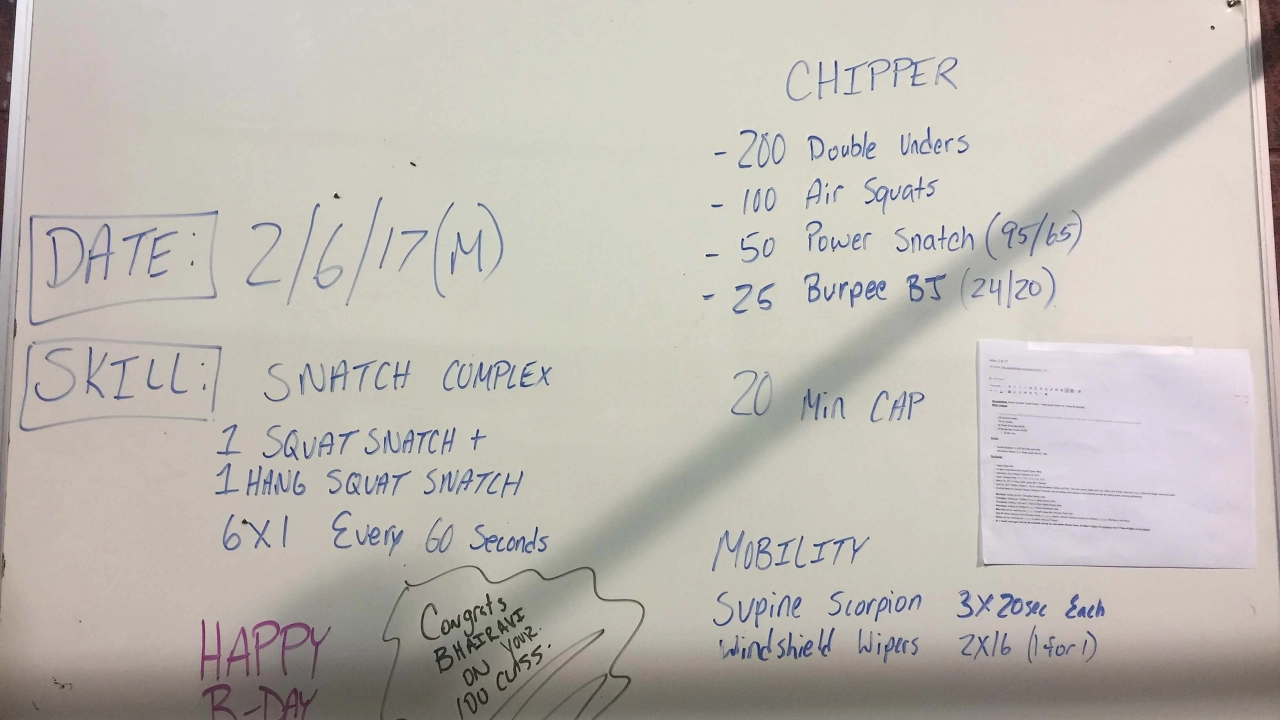 DATE: 2/6/17 (M)
SKILL: SNATCH COMPLEX
1 SQUAT SNATCH +
1 HANG SQUAT SNATCH
6X1 Every 60 Seconds
HAPPY
B-DAY
Congrats
BHAIRAVI
ON YOUR
100 CLASS.
CHIPPER
- 200 Double Unders
- 100 Air Squats
- 50 Power Snatch (95/65)
- 25 Burpee BJ (24/20)
20 Min CAP
MOBILITY
Supine Scorpion 3X20sec Each
Windshield Wipers 2X16 (1 for 1)